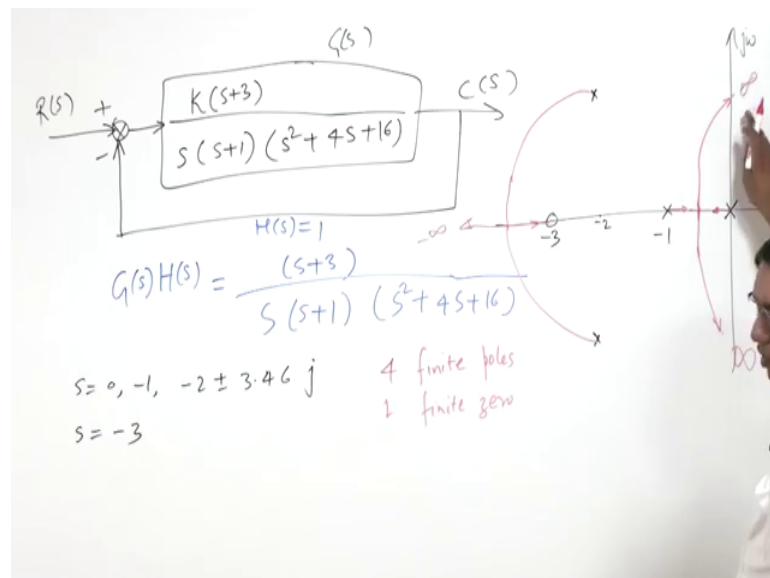 G(s)
R(s) + K(s+3) C(s)
- s(s+1)(s²+4s+16)
H(s)=1
G(s)H(s) = (s+3)
s(s+1) (s²+4s+16)
s=0, -1, -2 ± 3.46 j
s= -3
4 finite poles
1 finite zero
jω
∞
-∞ -3 -2 -1
∞